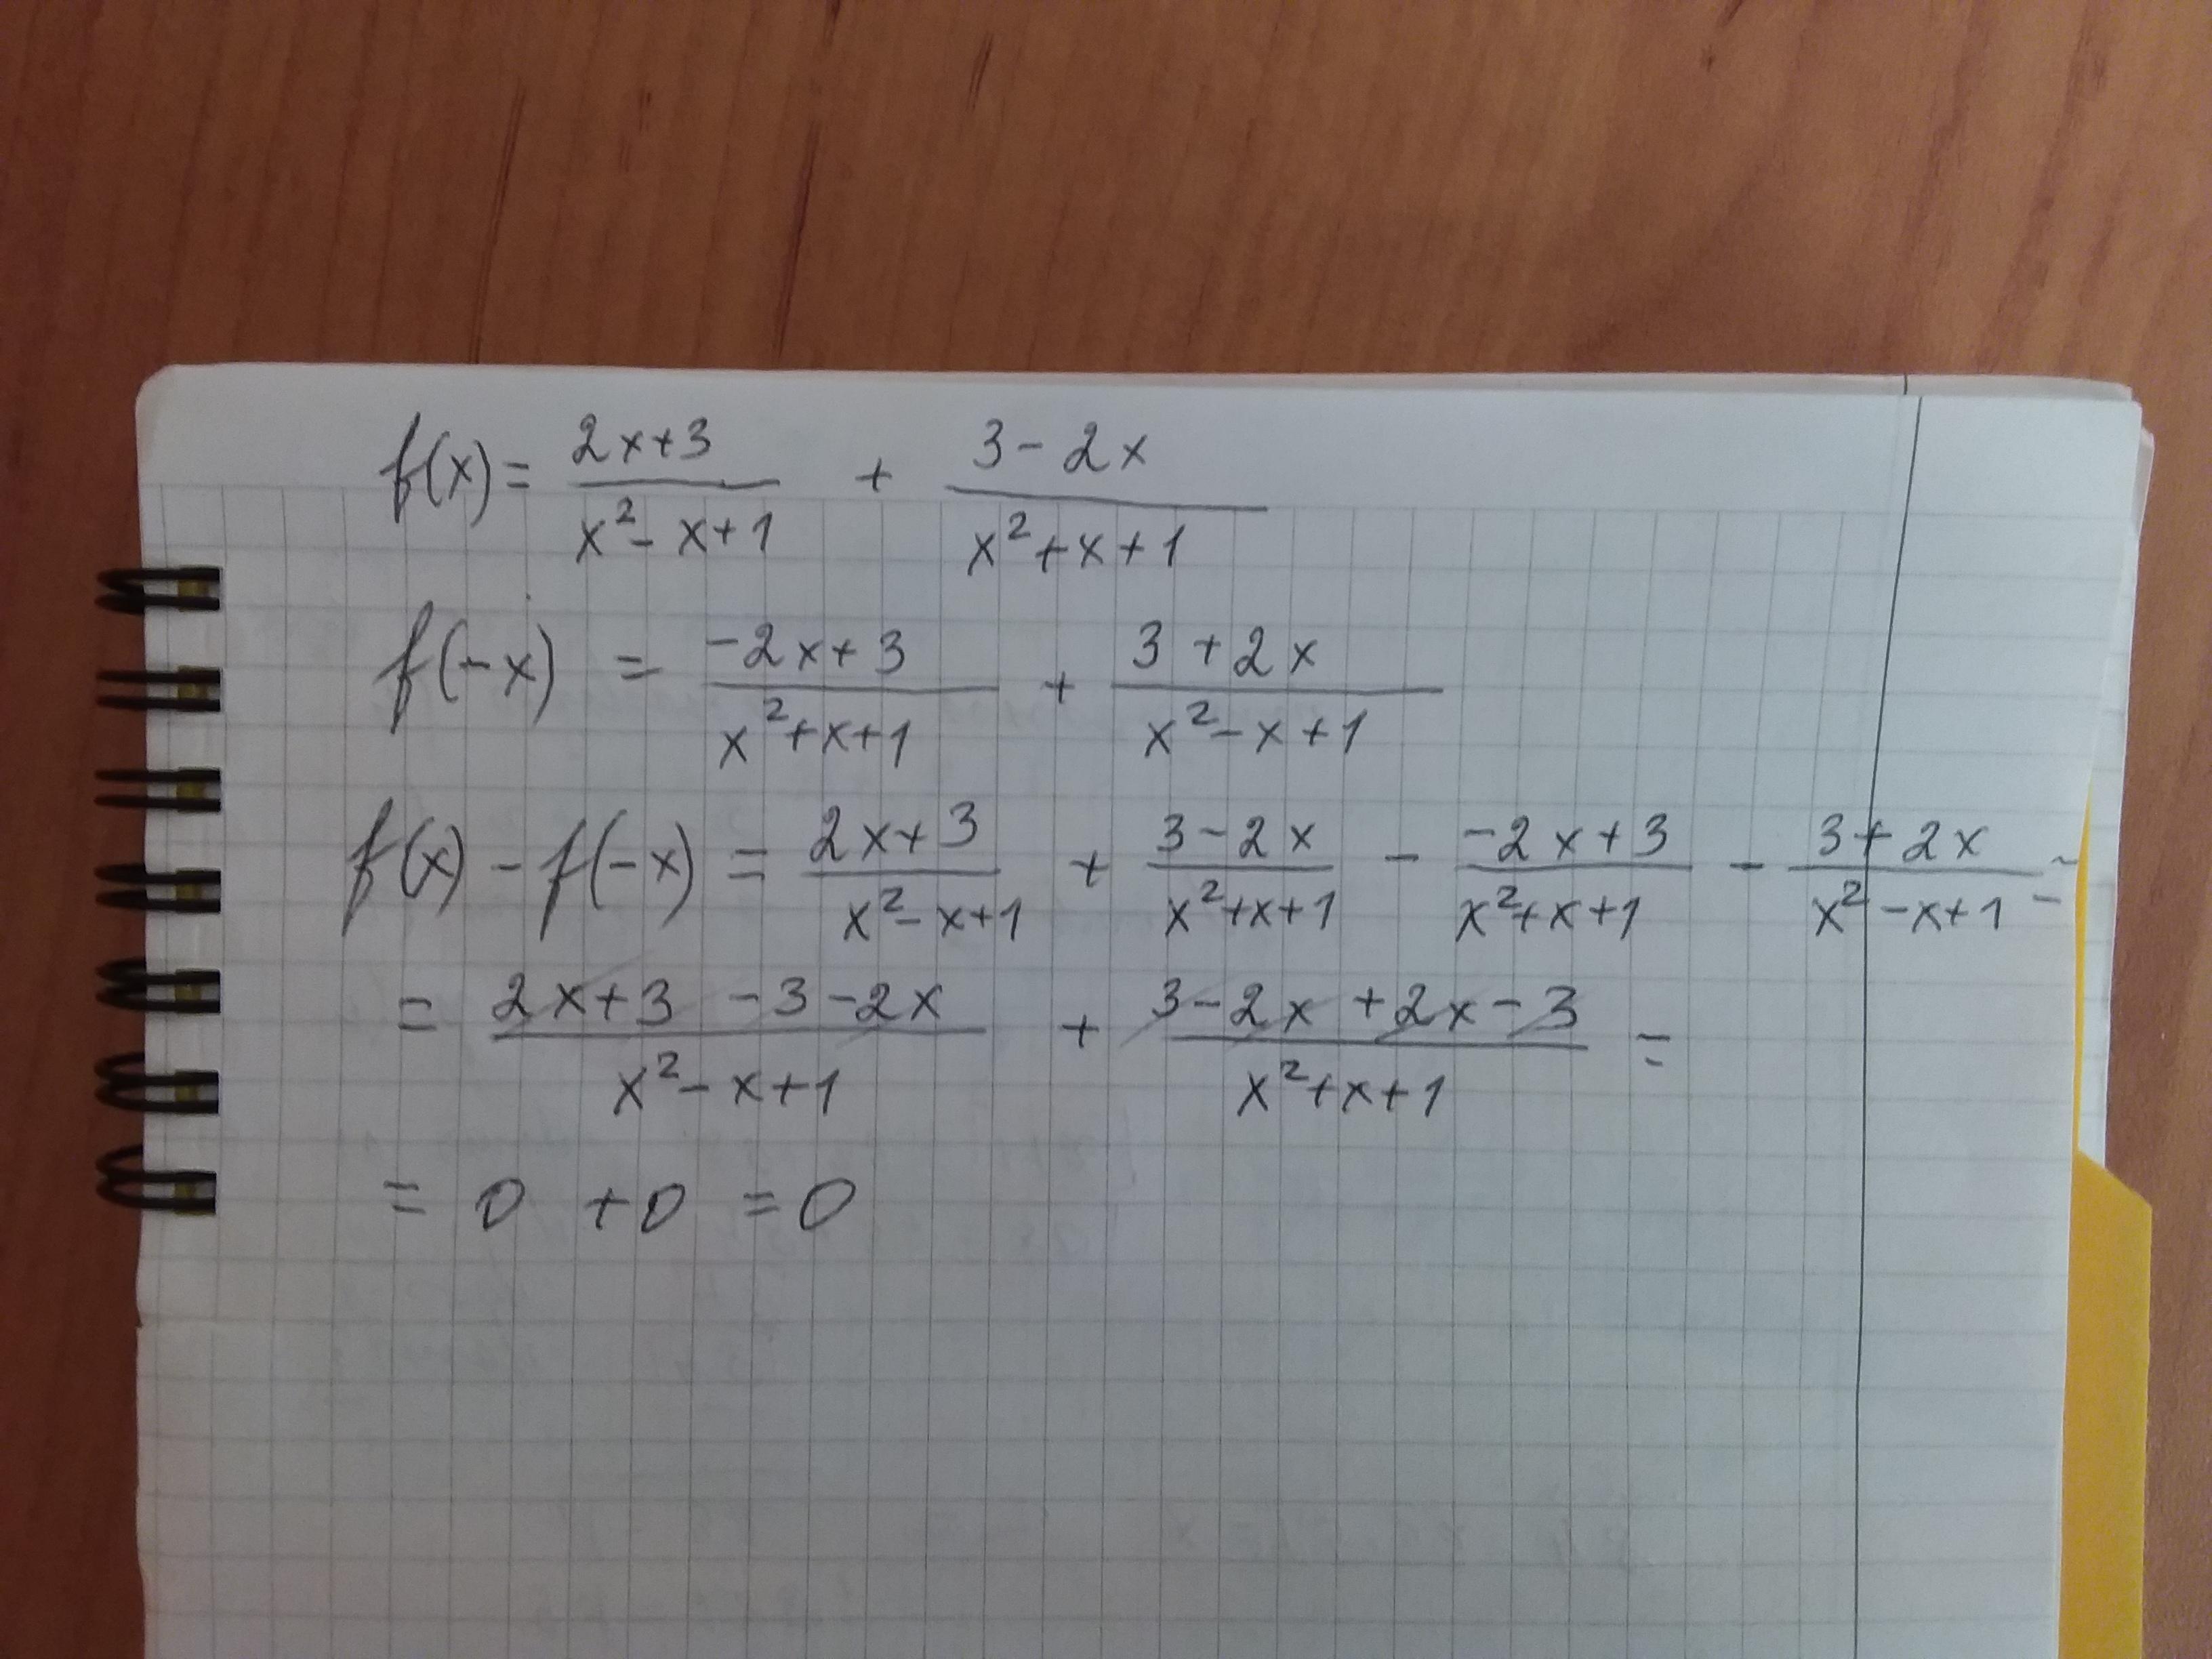 f(x) = (2x+3)/(x²-x+1) + (3-2x)/(x²+x+1)
f(-x) = (-2x+3)/(x²+x+1) + (3+2x)/(x²-x+1)
f(x) - f(-x) = (2x+3)/(x²-x+1) + (3-2x)/(x²+x+1) - (-2x+3)/(x²+x+1) - (3+2x)/(x²-x+1) =
= (2x+3-3-2x)/(x²-x+1) + (3-2x+2x-3)/(x²+x+1) =
= 0 + 0 = 0